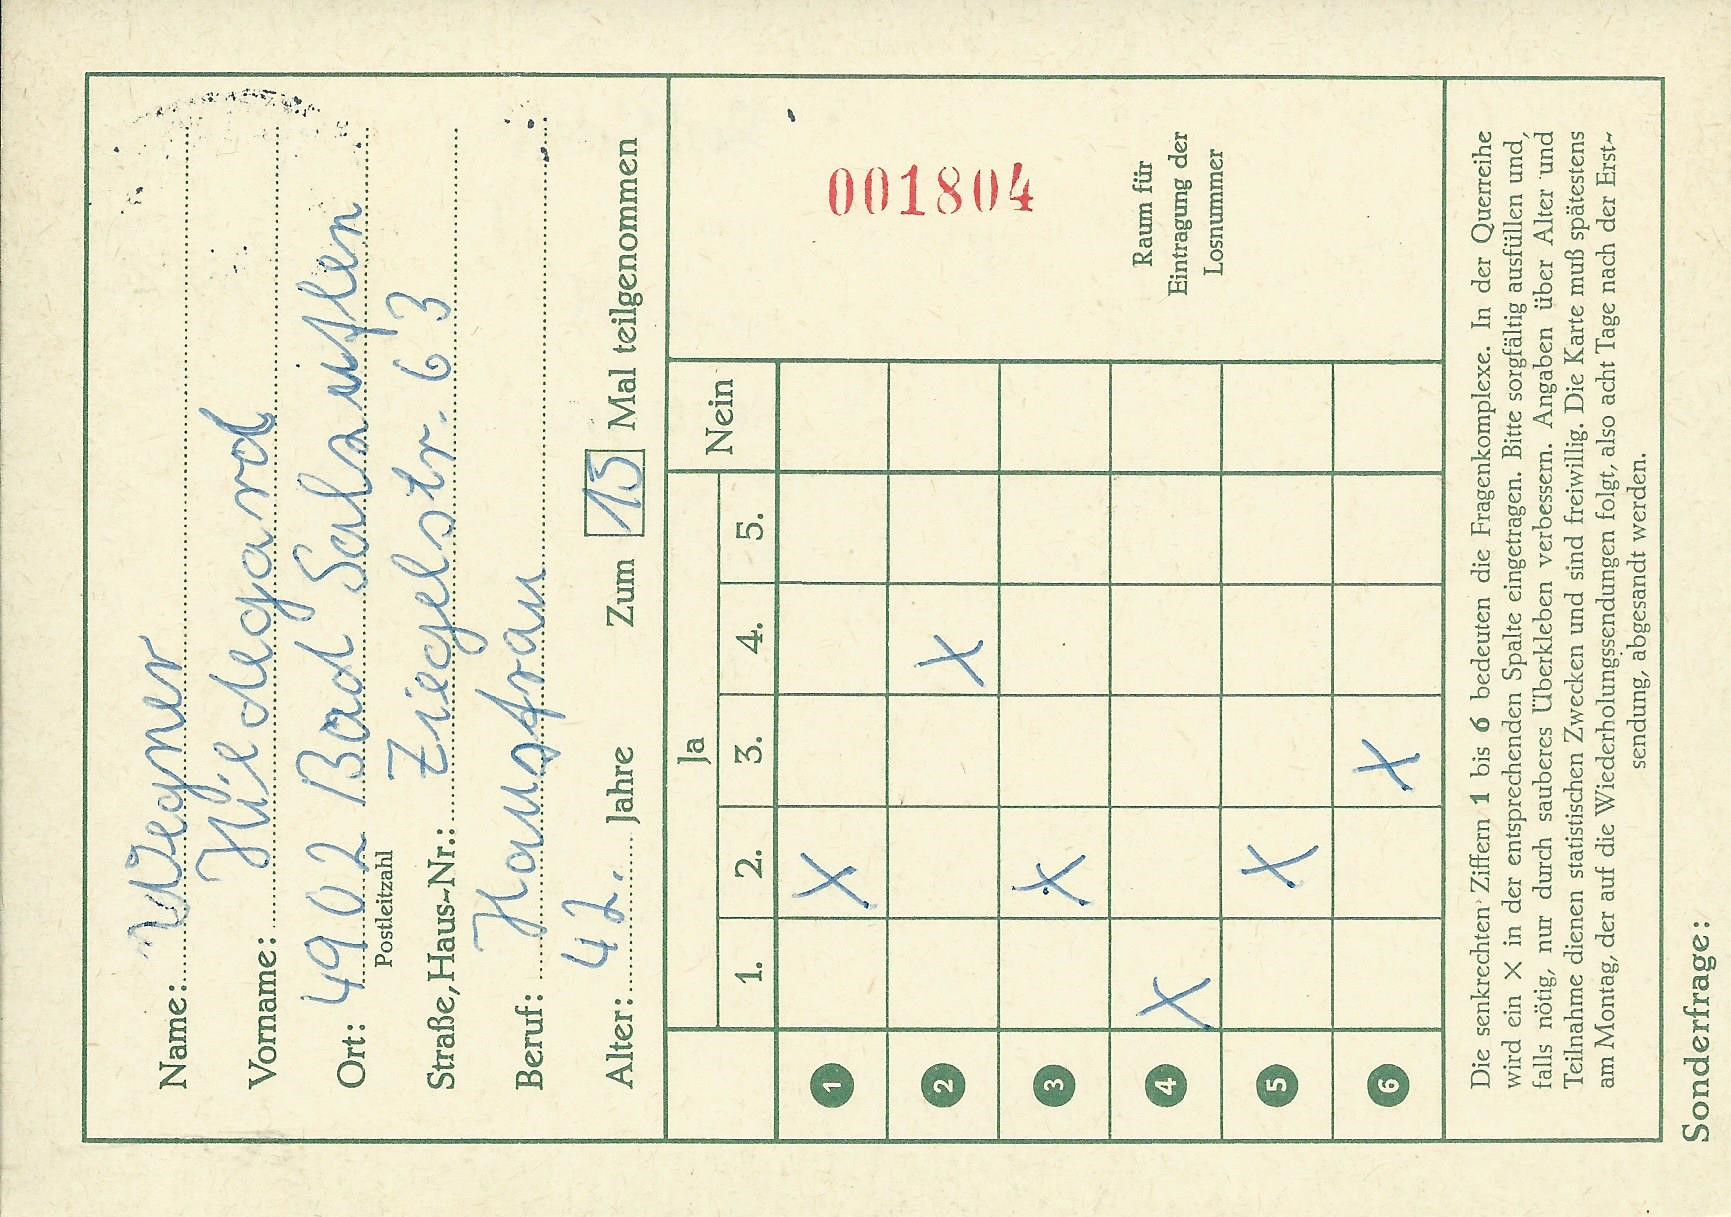 Name: Wegner
Vorname: Hildegard
Ort: 4902 Bad Salzuflen
Postleitzahl
Straße, Haus-Nr.: Ziegelstr. 63
Beruf: Hausfrau
Alter: 42. Jahre Zum 15 Mal teilgenommen
Ja Nein
1. 2. 3. 4. 5.
1 X
2 X
3 X
4 X
5 X
6 X
001804
Raum für
Eintragung der
Losnummer
Die senkrechten Ziffern 1 bis 6 bedeuten die Fragenkomplexe. In der Querreihe
wird ein X in der entsprechenden Spalte eingetragen. Bitte sorgfältig ausfüllen und,
falls nötig, nur durch sauberes Überkleben verbessern. Angaben über Alter und
Teilnahme dienen statistischen Zwecken und sind freiwillig. Die Karte muß spätestens
am Montag, der auf die Wiederholungssendungen folgt, also acht Tage nach der Erst-
sendung, abgesandt werden.
Sonderfrage: